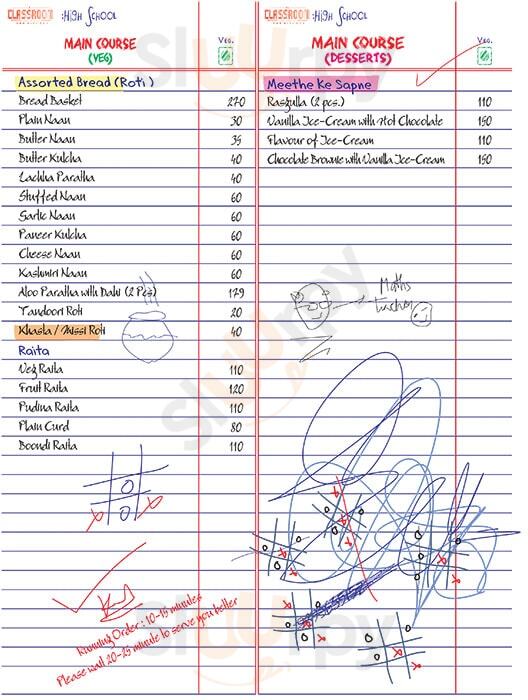 CLASSROOM :HIGH SCHOOL
MAIN COURSE
(VEG)
VEG.
Assorted Bread (Roti )
Bread Basket 270
Plain Naan 30
Butter Naan 35
Butter Kulcha 40
Lachha Paratha 40
Stuffed Naan 60
Garlic Naan 60
Paneer Kulcha 60
Cheese Naan 60
Kashmiri Naan 60
Aloo Paratha with Dahi (2 Pcs) 179
Tandoori Roti 20
Khasta / Missi Roti 40
Raita
Veg Raita 110
Fruit Raita 120
Pudina Raita 110
Plain Curd 80
Boondi Raita 110
Running Order : 10-15 minutes
Please wait 20-25 minute to serve you better
CLASSROOM :HIGH SCHOOL
MAIN COURSE
(DESSERTS)
VEG.
Meethe Ke Sapne
Rasgulla (2 pcs.) 110
Vanilla Ice-Cream with Hot Chocolate 150
Flavour of Ice-Cream 110
Chocolate Brownie with Vanilla Ice-Cream 150
Maths
Teacher
Sluurpy
Sluurpy
Sluurpy